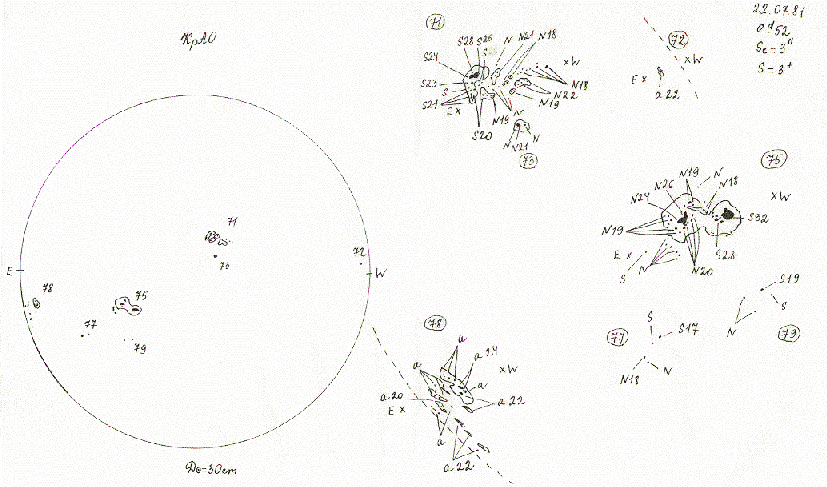 КрАО
E
W
71
70
72
78
75
77
79
До-30cm
71
S28
S26
S
N
N21
N18
S24
S23
S
S21
E x
S20
N19
N
N19
N22
N18
x W
N
N21
N
73
72
x W
E x
a 22
22.07.81
Sc-3
S-3
75
N19
N
N18
N26
N24
N19
x W
S32
S28
N20
E x
S
N
77
S
S17
N18
N
S19
S
N
79
78
a
a 14
a
x W
a
a 20
E x
a 22
a
a 22